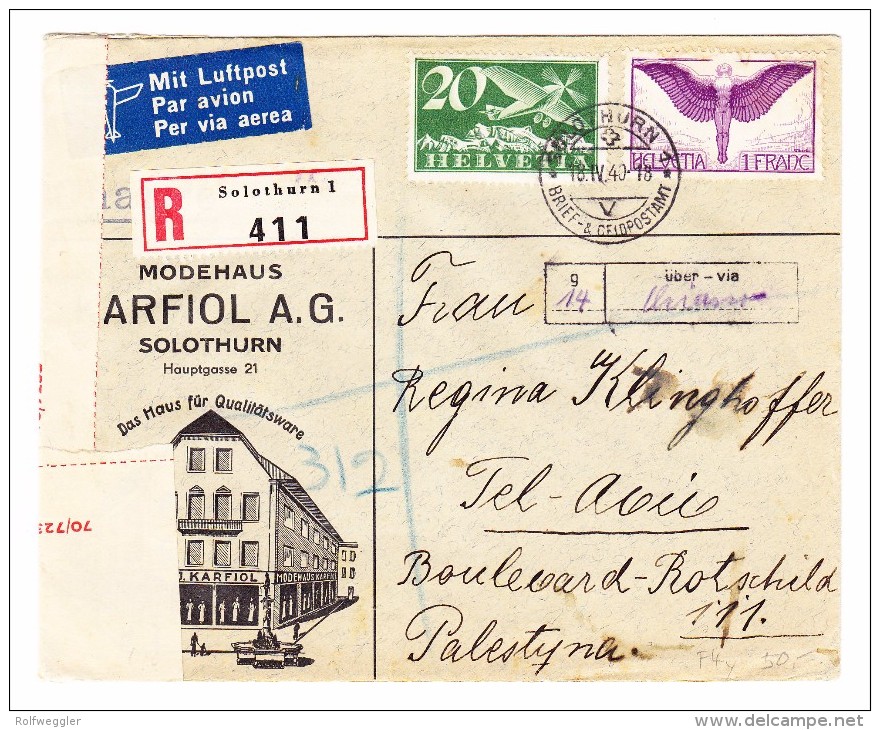 Mit Luftpost
Par avion
Per via aerea
R
Solothurn 1
411
20
HELVETIA
HELVETIA 1 FRANC
SOLOTHURN 1
18.IV.40-18
V
BRIEF- & GELDPOSTAMT
MODEHAUS
ARFIOL A.G.
SOLOTHURN
Hauptgasse 21
Das Haus für Qualitätsware
KARFIOL
MODEHAUS KARF
70/723
312
g
14
über - via
Frau
Regina Klinghoffer
Tel-Aviv
Boulevard-Rotschild
111.
Palestyna.
F4y 50,-
Rolfweggler
www.delcampe.net